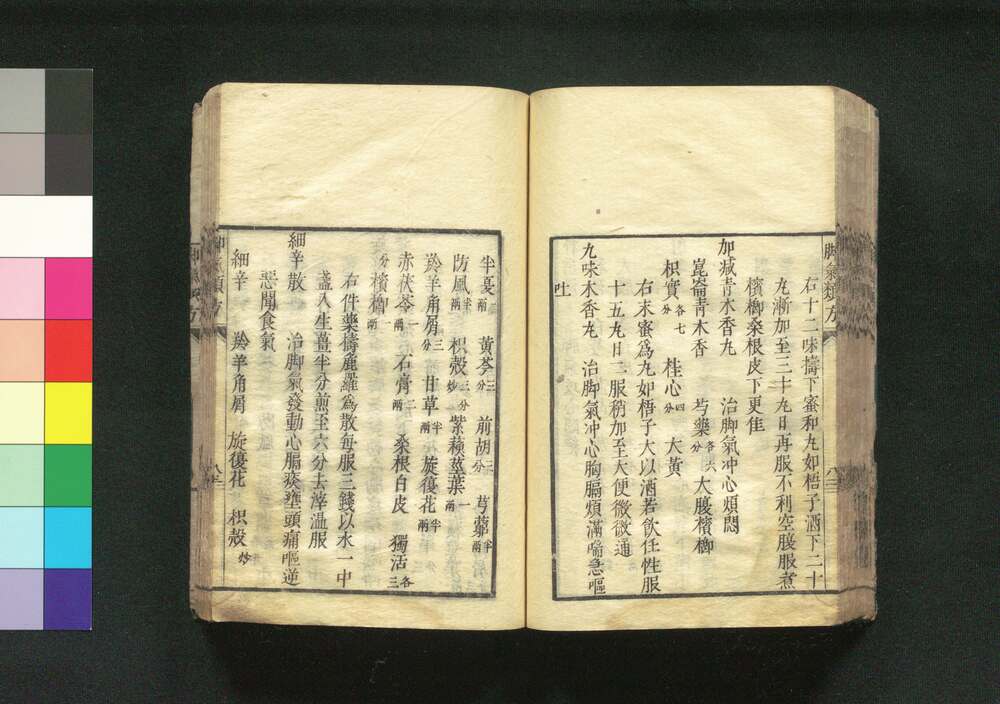 脚氣類方
右十二味擣下蜜和丸如梧子酒下二十
丸漸加至三十丸日再服不利空腹服煮
檳榔桑根皮下更佳
加减青木香丸　治脚氣冲心煩悶
崑崙青木香　芍藥各六分　大腹檳榔
枳實各七分　桂心四分　大黄
右末蜜爲丸如梧子大以酒若飲任性服
十五丸日二服稍加至大便微微通
九味木香丸　治脚氣冲心胸膈煩滿喘急嘔
吐
半夏兩　黄芩三分　前胡三分　芎藭半兩
防風半兩　枳殻三分炒　紫蘓莖葉一兩
羚羊角屑三分　甘草半兩　旋復花半兩
赤茯苓一兩　石膏二兩　桑根白皮　獨活各三
分　檳榔一兩
右件藥擣麁羅爲散毎服三錢以水一中
盞入生薑半分煎至六分去滓温服
細辛散　治脚氣發動心膈痰壅頭痛嘔逆
惡聞食氣
細辛　羚羊角屑　旋復花　枳殻炒